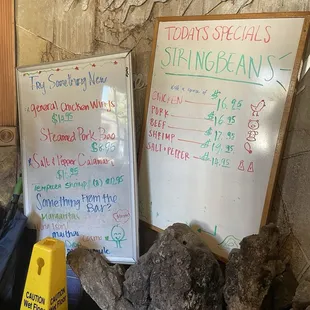 Try Something New
general Chicken Wings
$14.95
Steamed Pork Bao
$8.95
Salt & Pepper Calamari
$15.95
Tempura Shrimp (6) $12.95
Something From the
Bar?
Margaritas
TODAYS SPECIALS
STRINGBEANS
with a side of
CHICKEN $16.95
PORK $16.95
BEEF $17.95
SHRIMP $19.95
SALT + PEPPER $14.95
CAUTION
CAUTION
Wet Floor